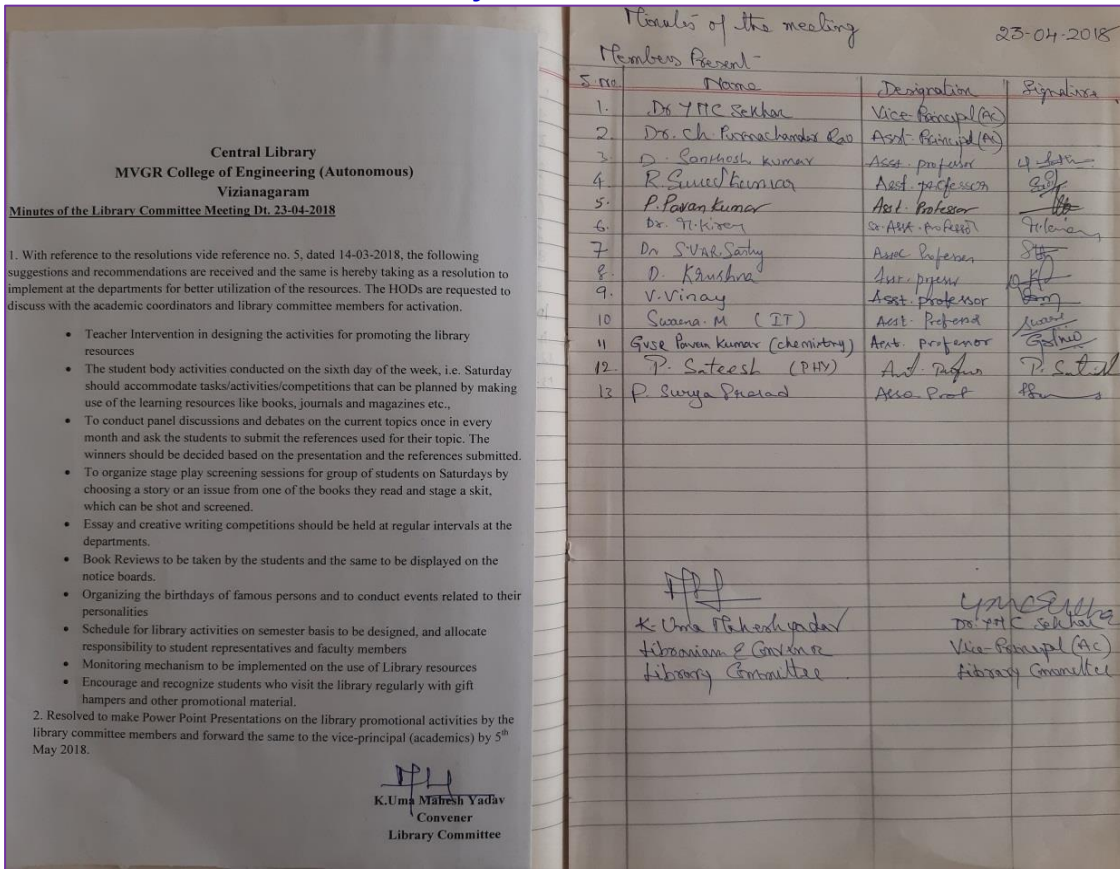 Central Library
MVGR College of Engineering (Autonomous)
Vizianagaram
Minutes of the Library Committee Meeting Dt. 23-04-2018
1. With reference to the resolutions vide reference no. 5, dated 14-03-2018, the following
suggestions and recommendations are received and the same is hereby taking as a resolution to
implement at the departments for better utilization of the resources. The HODs are requested to
discuss with the academic coordinators and library committee members for activation.
• Teacher Intervention in designing the activities for promoting the library
resources
• The student body activities conducted on the sixth day of the week, i.e. Saturday
should accommodate tasks/activities/competitions that can be planned by making
use of the learning resources like books, journals and magazines etc.,
• To conduct panel discussions and debates on the current topics once in every
month and ask the students to submit the references used for their topic. The
winners should be decided based on the presentation and the references submitted.
• To organize stage play screening sessions for group of students on Saturdays by
choosing a story or an issue from one of the books they read and stage a skit,
which can be shot and screened.
• Essay and creative writing competitions should be held at regular intervals at the
departments.
• Book Reviews to be taken by the students and the same to be displayed on the
notice boards.
• Organizing the birthdays of famous persons and to conduct events related to their
personalities
• Schedule for library activities on semester basis to be designed, and allocate
responsibility to student representatives and faculty members
• Monitoring mechanism to be implemented on the use of Library resources
• Encourage and recognize students who visit the library regularly with gift
hampers and other promotional material.
2. Resolved to make Power Point Presentations on the library promotional activities by the
library committee members and forward the same to the vice-principal (academics) by 5th
May 2018.
K.Uma Mahesh Yadav
Convener
Library Committee
Minutes of the meeting 23-04-2018
Members Present-
S.no. Name Designation Signature
1. Dr YMC Sekhar Vice-Principal (Ac)
2 Dr. Ch Purnachandra Rao Asst-Principal (Ac)
3 D. Santhosh Kumar Asst. professor
4 R. Kumar Asst. professor
5. P. Pavan Kumar Asst. Professor
6. Dr. N. Kiran Sr. Asst. Professor N. Kiran
7 Dr S.V.A.R. Sastry Assoc Professor
8. D. Krushna
9. V. Vinay Asst. professor
10 Swarna. M (IT) Asst.
11 GVSR Pavan Kumar (chemistry) Asst. professor
12. P. Sateesh (PHY) P. Satish
13 P. Surya Prasad Prof
K. Uma Mahesh yadav Dr YMC Sekhar
Librarian & Convenor Vice-Principal (Ac)
Library Committee Library Committee